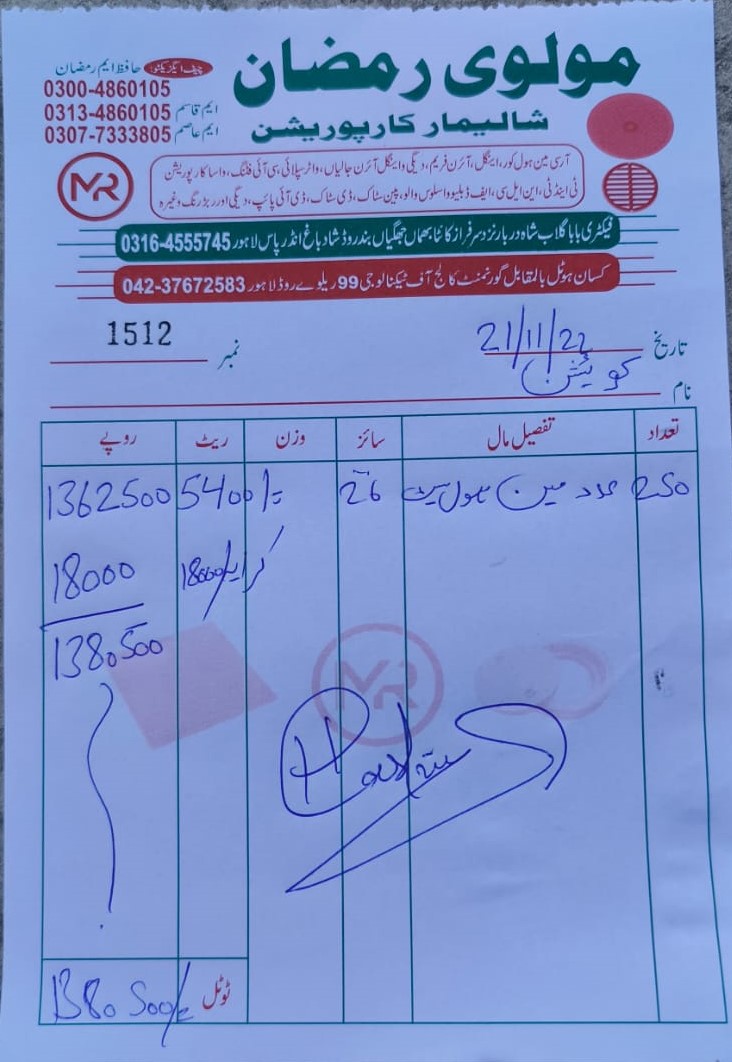 مولوی رمضان
شالیمار کارپوریشن
چیف ایگزیکٹو: حافظ ایم رمضان
0300-4860105
ایم قاسم 0313-4860105
ایم عاصم 0307-7333805
MR
آر سی مین ہول کور، اینگل، آئرن فریم، دیگی و اینگل آئرن جالیاں، واٹر سپلائی، سی آئی فٹنگ، واسا کارپوریشن
ٹی اینڈ ٹی، این ایل سی، ایف ڈبلیو او سلوس والو، پین سٹاک، ڈی سٹاک، ڈی آئی پائپ، دیگی اور ربڑ رنگ وغیرہ
فیکٹری بابا گلاب شاہ دربار نزد سرفراز کانٹا بھماں جھگیاں بند روڈ شاد باغ انڈر پاس لاہور 0316-4555745
کسان ہوٹل بالمقابل گورنمنٹ کالج آف ٹیکنالوجی 99 ریلوے روڈ لاہور 042-37672583
نمبر 1512
تاریخ 21/11/22
نام کوٹیشن
تعداد تفصیل مال سائز وزن ریٹ روپے
250 عدد مین ہول سیٹ 26 5400/- 1362500
کرایہ 18000/ 18000
1380500
MR
ٹوٹل 1380500/-